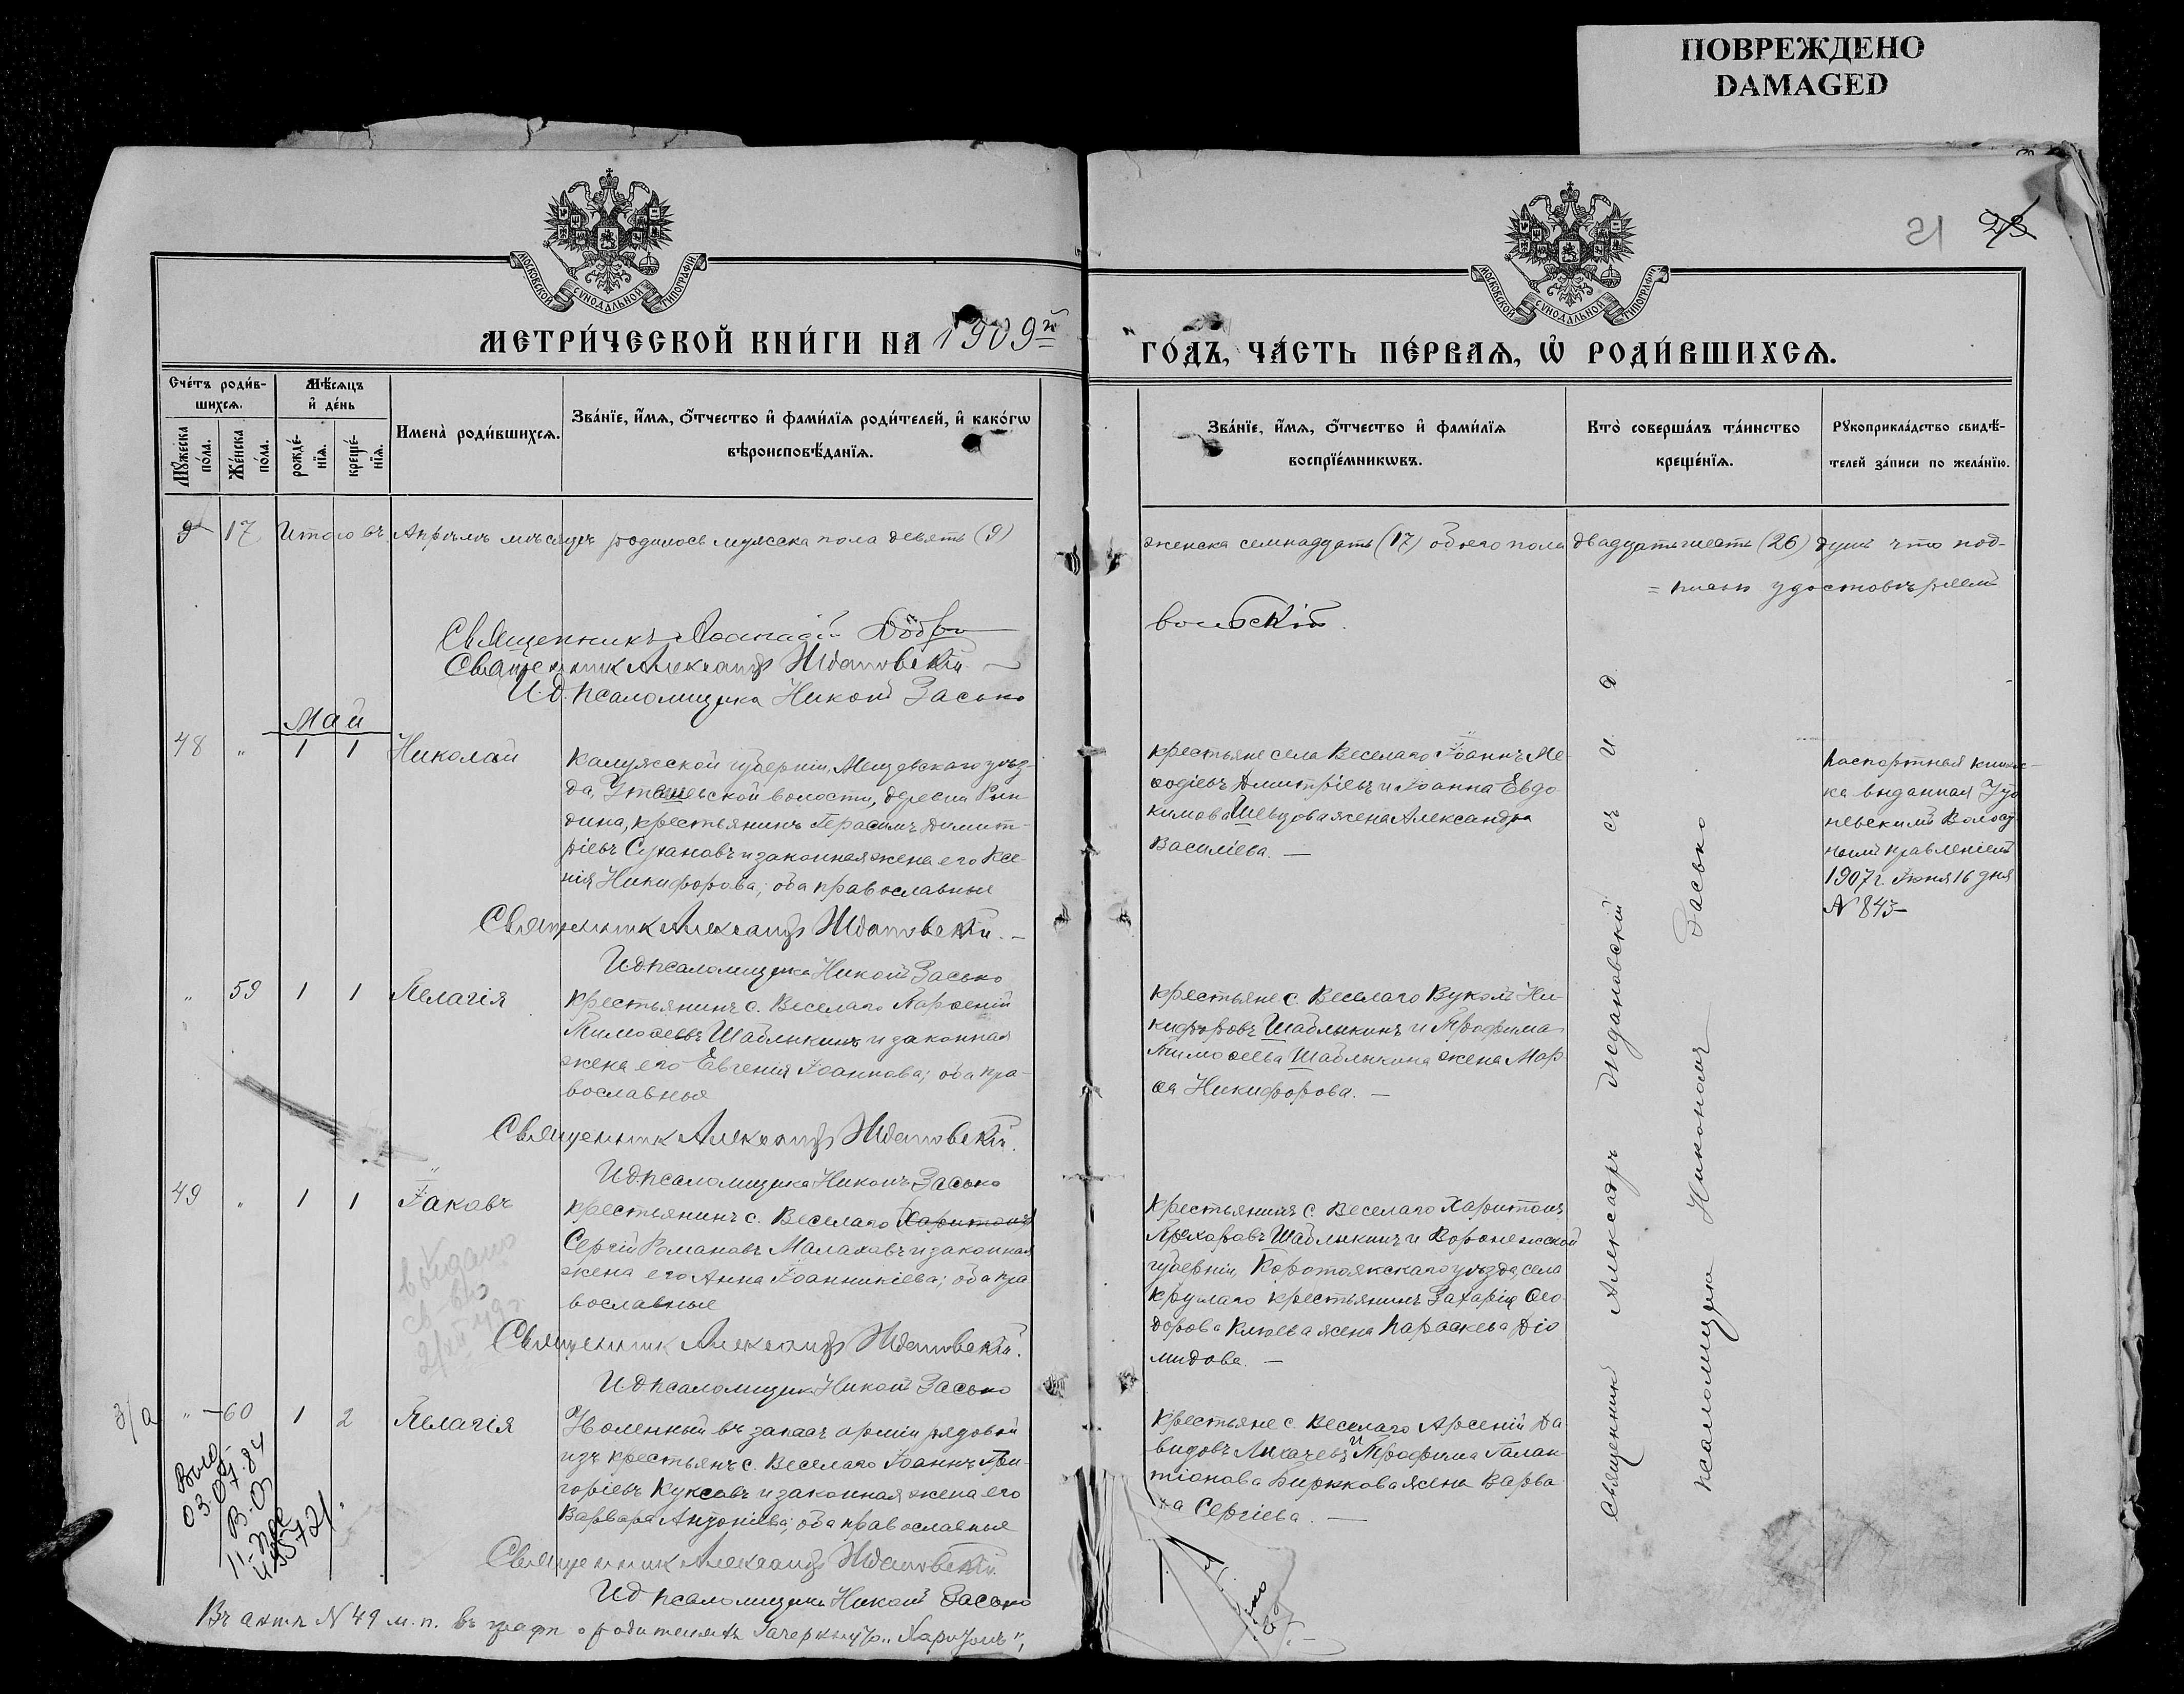 ПОВРЕЖДЕНО
DAMAGED
21 28
МОСКОВСКОЙ СѴНОДАЛЬНОЙ ТИПОГРАФІИ
МОСКОВСКОЙ СѴНОДАЛЬНОЙ ТИПОГРАФІИ
МЕТРИ́ЧЕСКОЙ КНИ́ГИ НА 1909й
ГО́ДЪ, ЧА́СТЬ ПЕ́РВАѦ, Ѽ РОДИ́ВШИХСѦ.
Сче́тъ роди́в-
шихсѧ.
Мꙋ́жеска
по́ла.
Же́нска
по́ла.
Мѣ́сѧцъ
и҆ де́нь
рожде́-
нїѧ.
креще́-
нїѧ.
Имена̀ роди́вшихсѧ.
Зва́нїе, и҆́мѧ, ѻ҆́тчество и҆ фами́лїѧ роди́телей, и҆ како́гѡ
вѣроисповѣ́данїѧ.
Зва́нїе, и҆́мѧ, ѻ҆́тчество и҆ фами́лїѧ
воспрїе́мникѡвъ.
Кто̀ соверша́лъ та́инство
креще́нїѧ.
Рꙋкоприкла́дство свидѣ́-
телей за́писи по жела́нїю.
9 17 Итого въ Апрѣлѣ мѣсяцѣ родилось мужска пола девять (9)
женска семнадцать (17) обоего пола двадцать шесть (26) душъ что под-
= писью удостовѣряемъ
Священникъ Добро
вольскій.
Священник Александр Ждановскій
И.д. псаломщика Никонъ Засько
Май
48 " 1 1 Николай
Калужской губерніи, Мещовскаго уѣз-
да, волости, деревни Рын-
дина, крестьянинъ Герасимъ Димит-
ріевъ Сухановъ и законная жена его Ксе-
нія Никифорова; оба православные
Священник Александр Ждановскій.
И д псаломщика Никонъ Засько
крестьяне села Веселаго Іоаннъ Ме-
ѳодіевъ Дмитріевъ и Іоанна Евдо
кимова Шевцова жена Александра
Васильева. —
Паспортная книж-
ка выданная
невскимъ Волост
нымъ правленіемъ
1907 г. Іюня 16 дня
№ 843
" 59 1 1 Пелагія
Крестьянинъ с. Веселаго Парѳеній
Тимоѳеевъ Шаблыкинъ и законная
жена его Евгенія Іоаннова; оба пра-
вославные
Священник Александр Ждановскій.
И д псаломщика Никонъ Засько
крестьяне с. Веселаго Вуколъ Ни-
кифоровъ Шаблыкинъ и Трофима
Тимоѳеева Шаблыкина жена Мар
ѳа Никифорова. —
49 " 1 1 Іаковъ
выдано
св-во
Крестьянинъ с. Веселаго Харитонъ
Сергій Романовъ Малаховъ и законная
жена его Анна Іоанникіева; оба пра
вославные
Священник Александр Ждановскій.
И д псаломщика Никонъ Засько
Крестьянинъ с. Веселаго Харитонъ
Прохоровъ Шаблыкинъ и Воронежской
губерніи, Коротоякскаго уѣзда, села
Круглаго крестьянина Захарія Ѳео
дорова Клюева жена Параскева Діо
мидова. —
З/а " 60 1 2 Пелагія
03.07.84
Уволенный въ запасъ арміи рядовой
изъ крестьянъ с. Веселаго Іоаннъ Гри
горіевъ Куксовъ и законная жена его
Варвара Антоніева; оба православные
Священник Александр Ждановскій
И д псаломщика Никонъ Засько
Крестьяне с. Веселаго Арсеній Да
видовъ Лихачевъ и Трофима Галак
тіонова Бирюкова жена Варва
ра Сергіева. —
Священникъ Александръ Ждановскій съ И. д.
псаломщика Никономъ Засько
Въ актѣ № 49 м. п. въ графѣ о родителяхъ зачеркнуто „Харитонъ",